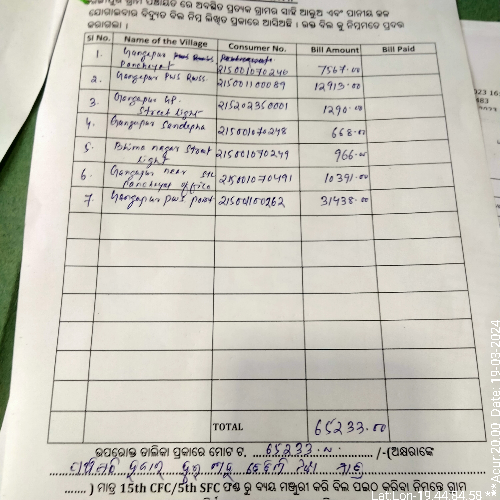 ପଞ୍ଚାୟତ ରେ ଅବସ୍ଥିତ ପ୍ରତ୍ୟେକ ଗ୍ରାମର ସାହି ଆଲୁଅ ଏବଂ ପାନୀୟ ଜଳ
ଯୋଗାଇବାର ବିଦ୍ୟୁତ ବିଲ ନିମ୍ନ ଲିଖିତ ପ୍ରକାରେ ଆସିଅଛି । ଉକ୍ତ ବିଲ କୁ ନିମ୍ନମତେ ପ୍ରଦାନ
କରାଗଲା ।
Sl No. Name of the Village Consumer No. Bill Amount Bill Paid
1. Gangapur
Panchayat 215001070246 7567.00
2. Gangapur PWS RWSS. 215001100089 12913.00
3. Gangapur GP.
Street light 215202350001 1290.00
4. Gangapur Sandepha 215001070248 668.00
5. Bhima nagar Street
light 215001070249 966.00
6. Gangapur near
Panchayat office 215001070491 10391.00
7. Gangapur PWS Point 215001100262 31438.00
TOTAL 65233.00
ଉପରୋକ୍ତ ତାଲିକା ପ୍ରକାରେ ମୋଟ ଟ. 65233.00 /-(ଅକ୍ଷରେ
) ମାତ୍ର 15th CFC/5th SFC ଫଣ୍ଡ ରୁ ବ୍ୟୟ ମଞ୍ଜୁରୀ କରି ବିଲ ପଇଠ କରିବା ନିମନ୍ତେ ଗ୍ରାମ
Date, 19-03-2024
Lat Lon-19.44 84.58